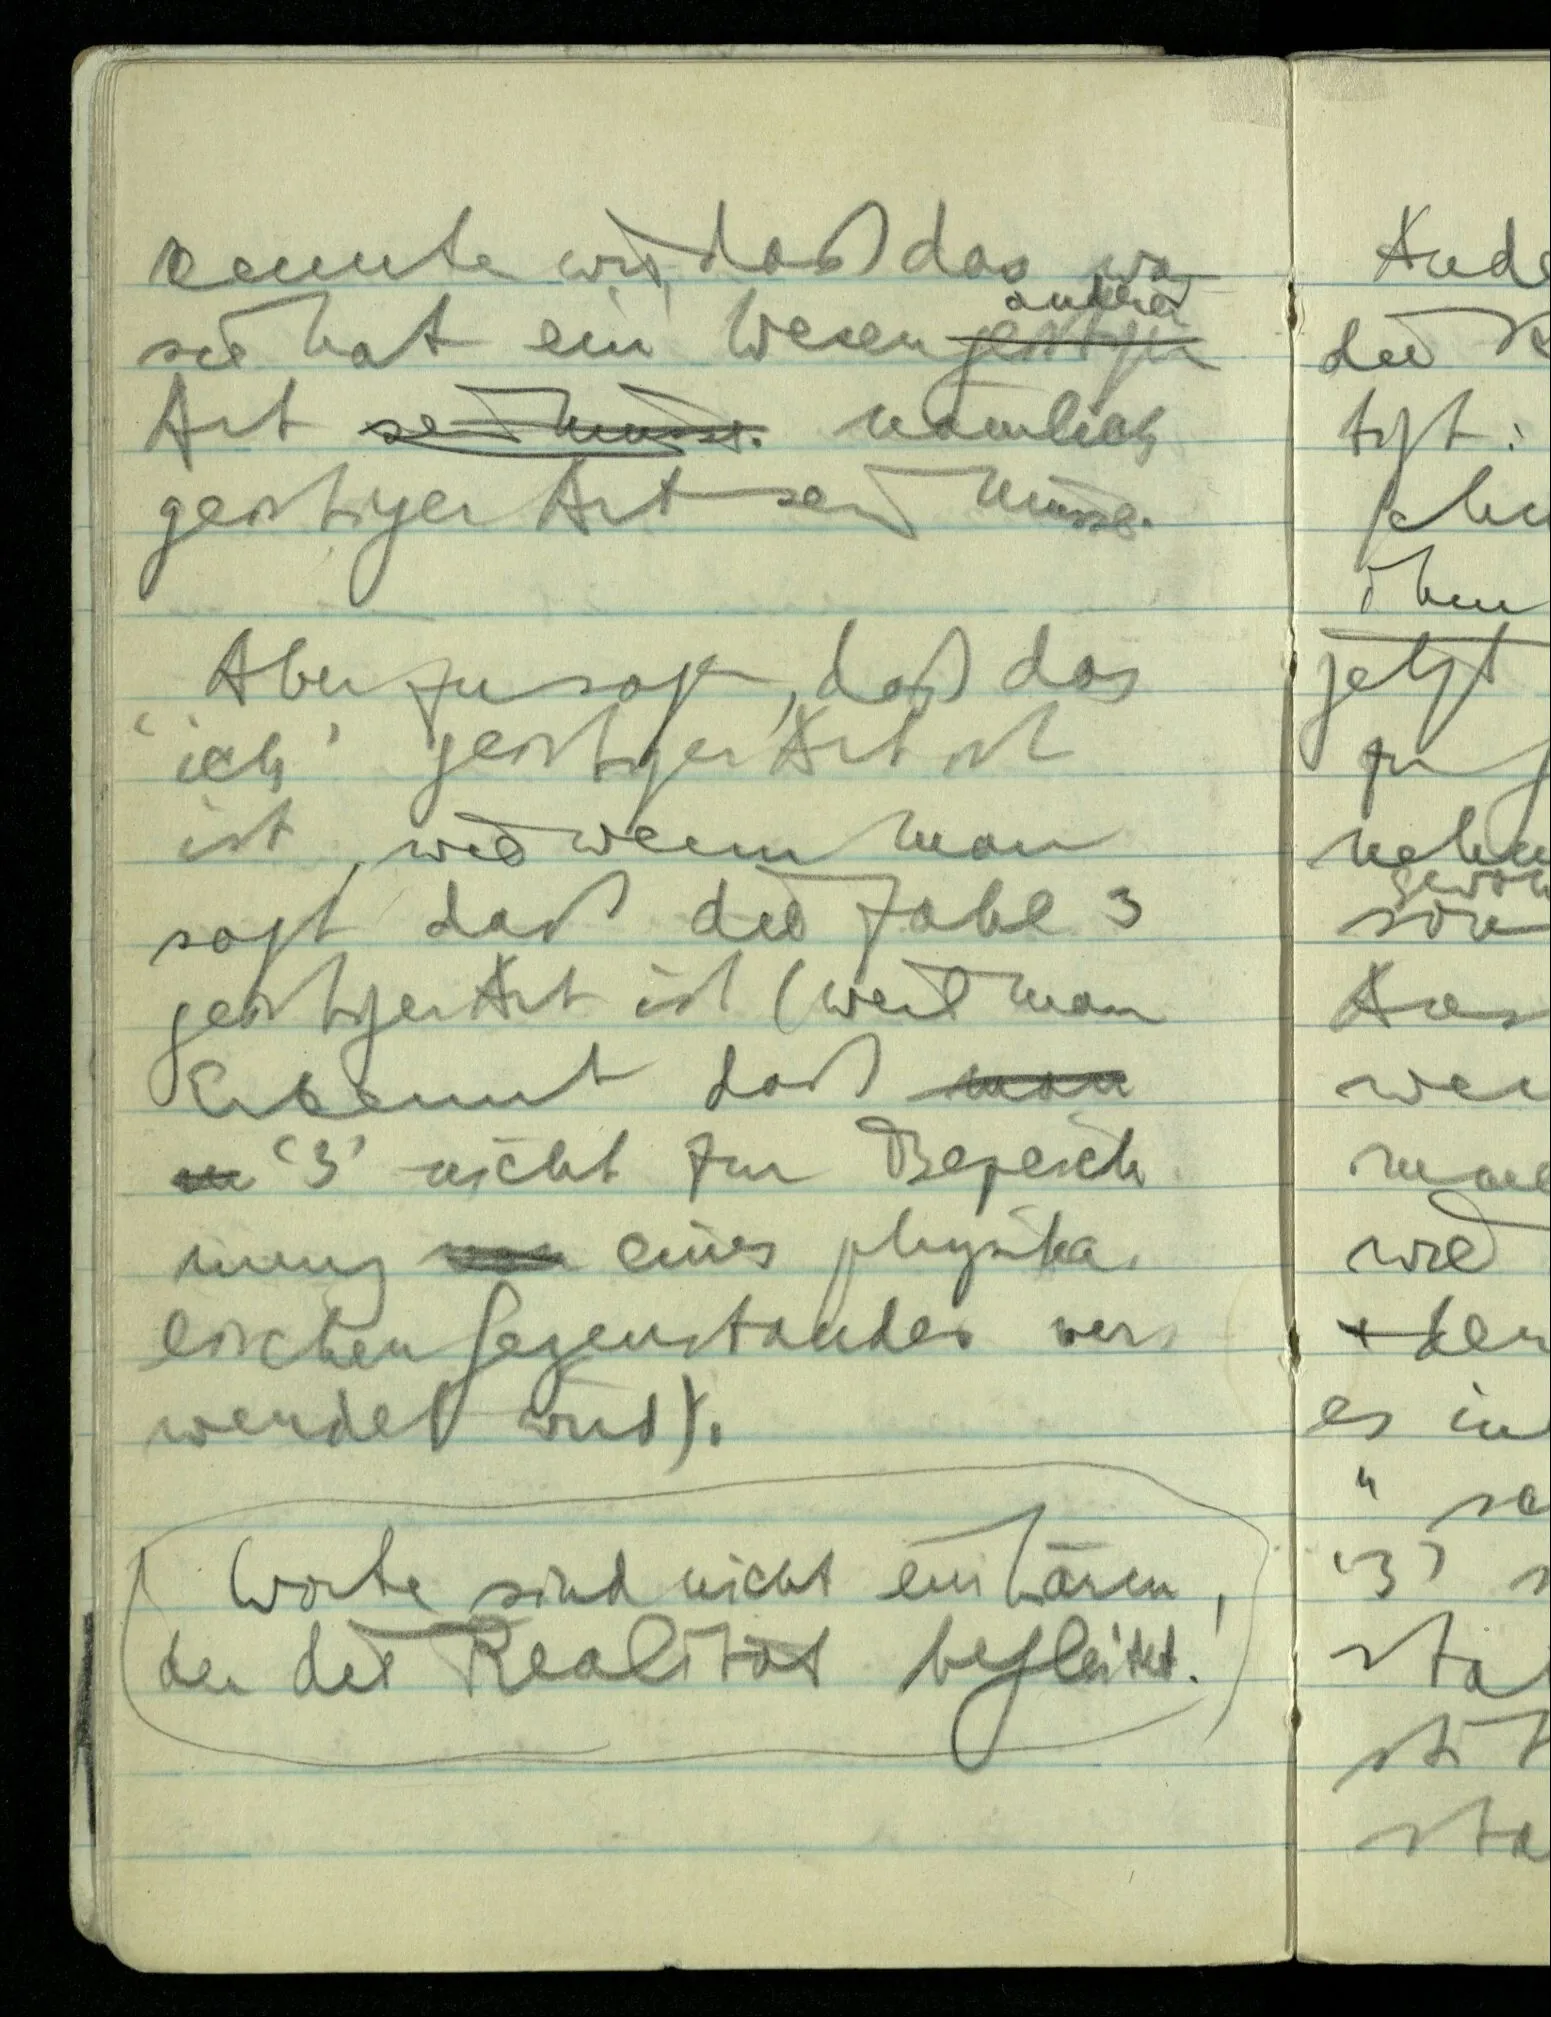 kennte wird, daß das was
andrer
sie hat ein Wesen geistiger
Art sein müsse. nämlich
geistiger Art sein müsse.
Aber zu sagen, daß das
‘ich’ geistiger Art ist
ist, wie wenn man
sagt daß die Zahl 3
geistiger Art ist (weil man
Erkennt daß man
‘3’ nicht zur Bezeich
nung eines physika
lischen Gegenstandes ver
wendet wird).
Worte sind nicht ein
den die Realität begleitet.
Ande
die
jetzt
zu
es in
"
‘3’